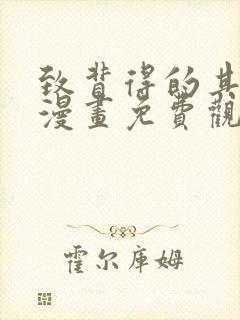 致背得的其
漫畫免費觀
霍尔库姆